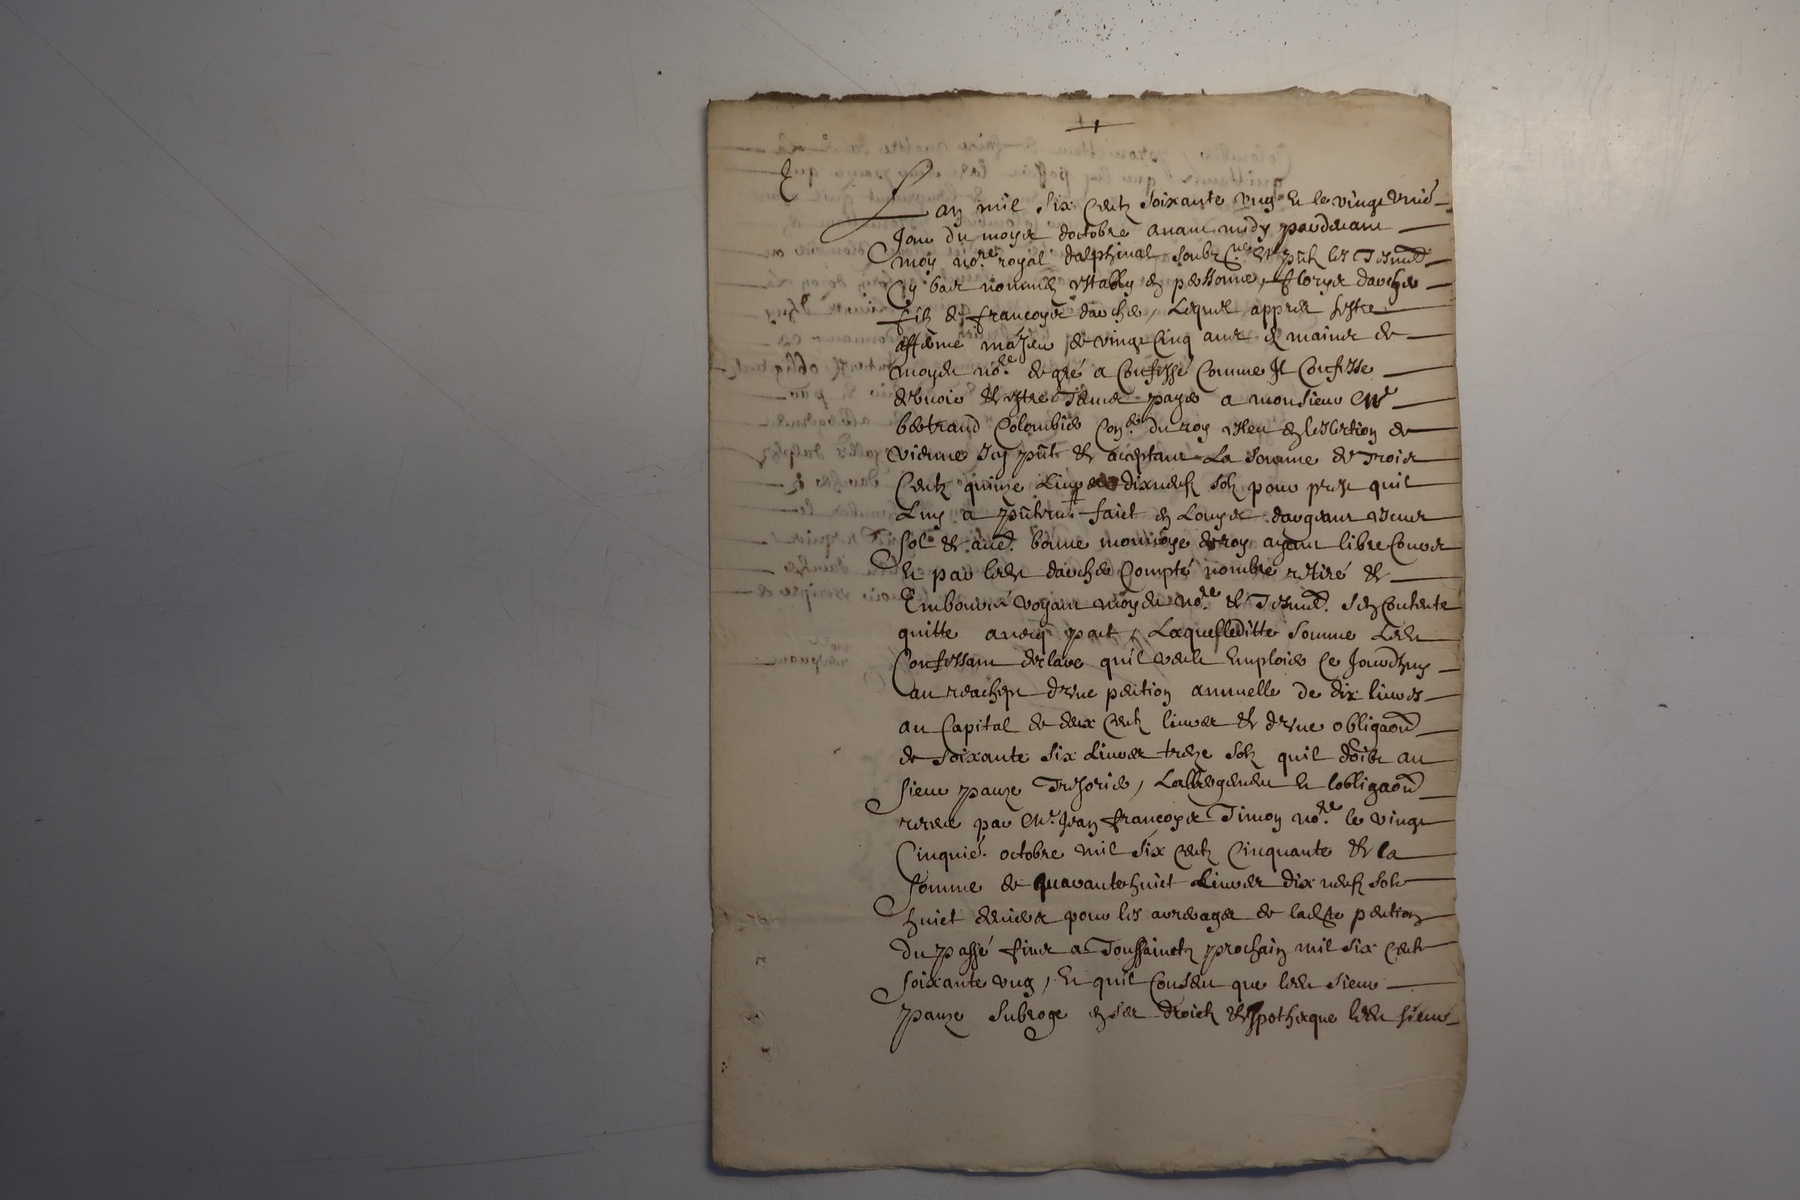 Lan mil six centz soixante ung et le vingt unie.
Jour du moys doctobre avant midy pardevant
moy no.re royal dalphinal soubz.ne et pntz les tesmd.
Cy bas nommes establis en personne, floryd
filz de francoys, Lequel appres sestre
affermé majeur de vingt cinq ans es mains de
moydit no.re de gré a Confessé Comme Il Confesse
debvoir et estre tenus payer a monsieur M.e
bertrand Colombier Con.er du roy esleu en leslection de
vienne Icy pnt et acceptant La somme de Trois
Centz quinze Livres dixneuf solz pour prest quil
Luy a pntem.t faict en Louys dargent escus
sol et aue. bonne monnoye de roy ayant libre Cours
Et par ledit Compté nombré retiré et
Emboursé voyant moydit no.re et tesmd. sen contente
quitte avecq pact, Laquelleditte somme Ledit
Confessant declare quil veult Employer Ce Jourdhuy
au reachept dune pention annuelle de dix livres
au Capital de deux Centz livres et dune obligaon
de soixante six Livres treze solz quil doibt au
sieur, et lobligaon
receue par M.e Jean francoys Timon no.re le vingt
Cinquie. octobre mil six centz Cinquante et la
somme de quarantehuict Livres dix neuf solz
huict deniers pour les arreages de ladite pention
du passé finit a Toussainctz prochain mil six centz
soixante ung, Et quil Consent que ledit sieur
subroge en ses droictz et Ipotheque ledit sieur